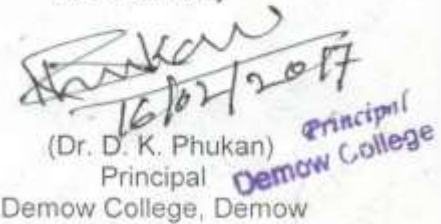 Phukan
16/02/2017
(Dr. D. K. Phukan)
Principal
Demow College, Demow
Principal
Demow College